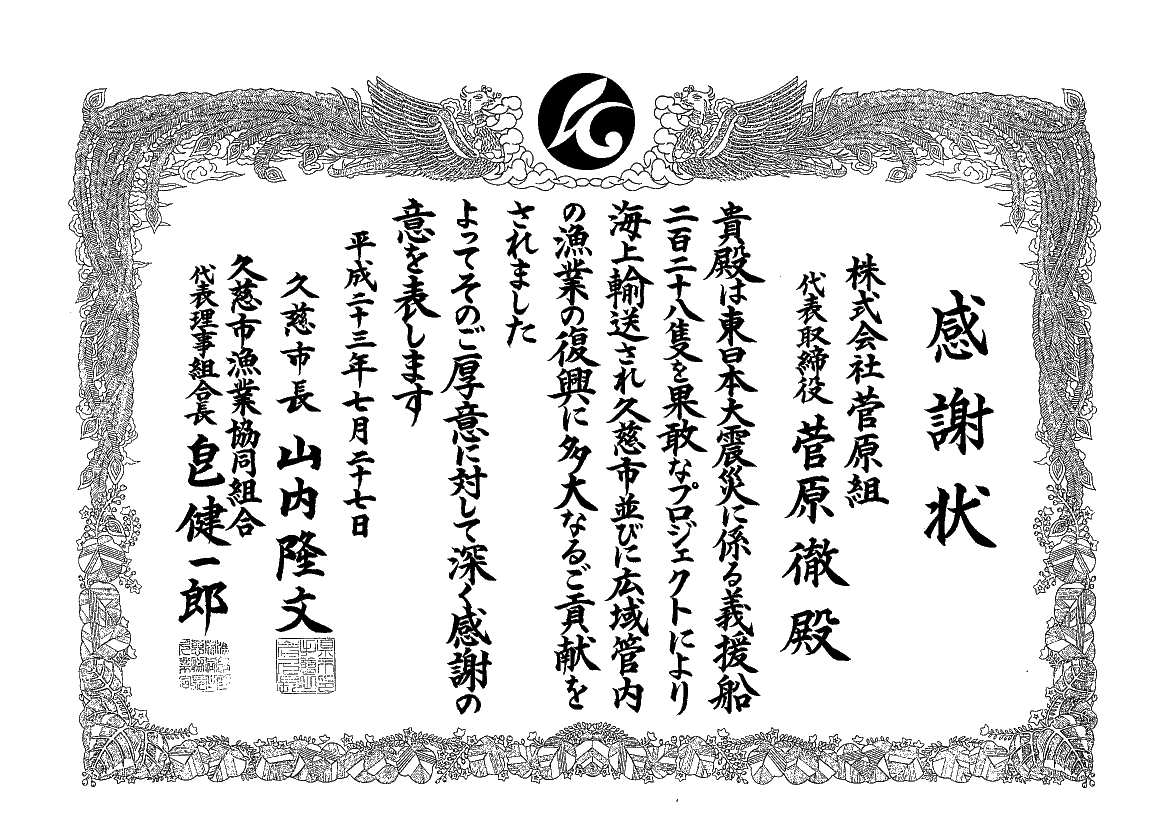 感謝状
株式会社菅原組
代表取締役 菅原 徹 殿
貴殿は東日本大震災に係る義援船
二百二十八隻を果敢なプロジェクトにより
海上輸送され久慈市並びに広域管内
の漁業の復興に多大なるご貢献を
されました
よってそのご厚意に対して深く感謝の
意を表します
平成二十三年七月二十七日
久慈市長 山内隆文
久慈市漁業協同組合
代表理事組合長 皀健一郎